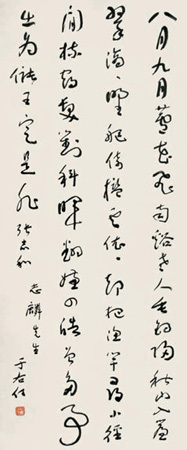 八月九月蘆花飛南谿老人垂釣歸秋山入簾
翠滴〻野艇倚檻雲依〻却把漁竿尋小徑
閒梳鶴髮對斜暉翻嫌四皓曾多事
出為儲王定是非 張志和
志麟先生
于右任